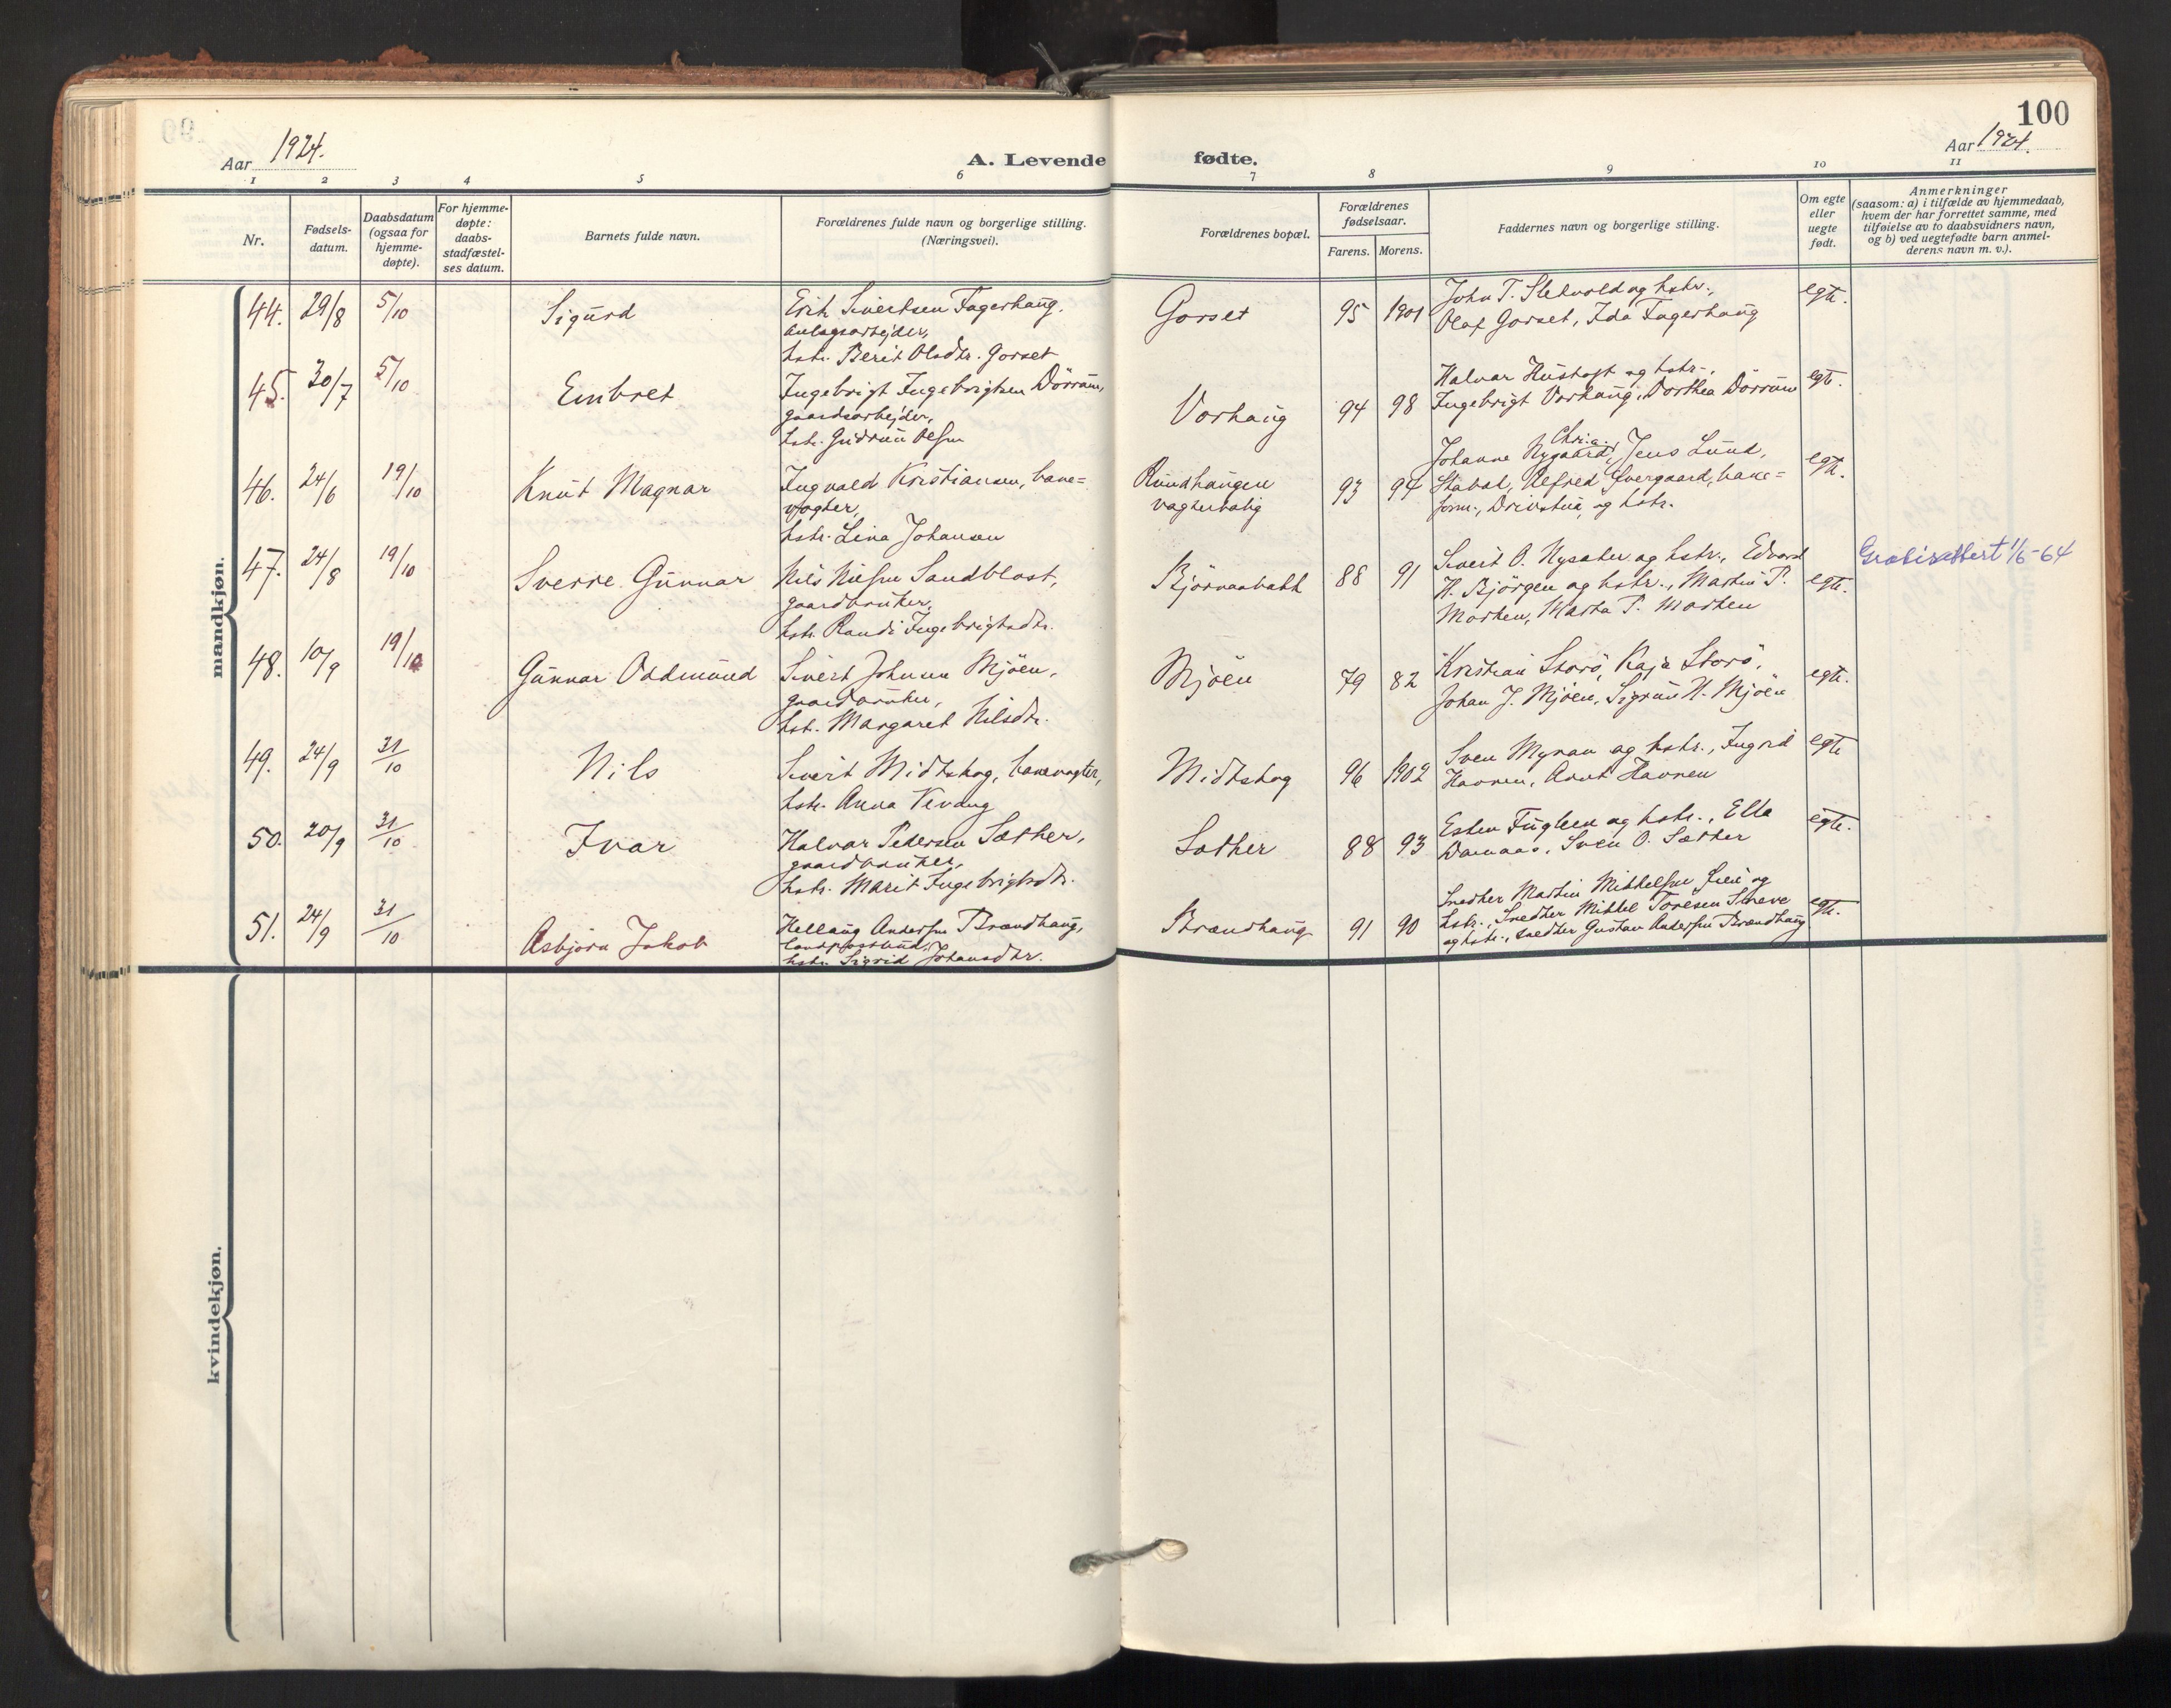 100
Aar 1924.
A. Levende fødte.
Aar 1924.
1 2 3 4 5 6 7 8 9 10 11
Nr.
Fødsels-
datum.
Daabsdatum
(ogsaa for
hjemme-
døpte).
For hjemme-
døpte:
daabs-
stadfæstel-
ses datum.
Barnets fulde navn.
Forældrenes fulde navn og borgerlige stilling.
(Næringsvei).
Forældrenes bopæl.
Forældrenes
fødselsaar.
Farens. Morens.
Faddernes navn og borgerlige stilling.
Om egte
eller
uegte
født.
Anmerkninger
(saasom: a) i tilfælde av hjemmedaab,
hvem der har forrettet samme, med
tilføielse av to daabsvidners navn,
og b) ved uegtefødte barn anmel-
derens navn m. v.).
mandkjøn.
44. 29/8 5/10 Sigurd
Erik Sivertsen Fagerhaug,
anlægsarbejder,
hstr. Berit Olsdtr. Gorset
Gorset 95 1901
John T. Stehvold og hstr.,
Olaf Gorset, Ida Fagerhaug
egte.
45. 30/7 5/10 Embret
Ingebrigt Ingebrigtsen Dörrum,
gaardsarbejder,
hstr. Gudrun Olsen
Vorhaug 94 98
Halvar Hustoft og hstr.,
Ingebrigt Vorhaug, Dorthea Dörrum
egte.
46. 24/6 19/10 Knut Magnar
Ingvald Kristiansen, bane=
vogter,
hstr. Lina Johansen
Rundhaugen
vagterbolig
93 94
Johanne Nygaard, Jens Lund,
Alfred bane=
form., Drivstua, og hstr.
egte.
47. 24/8 19/10 Sverre Gunnar
Nils Nilsen Sandblost,
gaardbruker,
hstr. Randi Ingebrigtsdtr.
Björnasbakk 88 91
Sivert O. Nysæter og hstr., Edvard
H. Björgen og hstr., Martin P.
Morken, Marta P. Morken
egte.
1/6-64
48. 10/9 19/10 Gunnar Oddmund
Sivert Johnsen Mjöen,
gaardbruker,
hst. Margaret Nilsdtr.
Mjöen 79 82
Kristian Storö, Kaja Storö,
Johan J. Mjöen, Sigrun H. Mjöen
egte.
49. 24/9 31/10 Nils
Sivert Midtskog, banevogter,
hstr. Anna Vevang
Midtskog 96 1902
Sven Myran og hstr., Ingrid
Havnen, Arnt Havnen
egte
50. 20/9 31/10 Ivar
Halvar Pedersen Sæther,
gaardbruker,
hstr. Marit Ingebrigtsdtr.
Sæther 88 93
Esten Fuglem og hstr., Ella
Sven O. Sæther
egte.
51. 24/9 31/10 Asbjörn Jakob
Hellaug Andersen Brændhaug,
landpostbud,
hstr. Sigrid Johansdtr.
Brændhaug 91 90
Snedker Martin Mikkelsen og
hstr., Snedker Mikkel Toresen
og hstr., snedker Gustav Andersen Brændhaug
egte.
kvindekjøn.